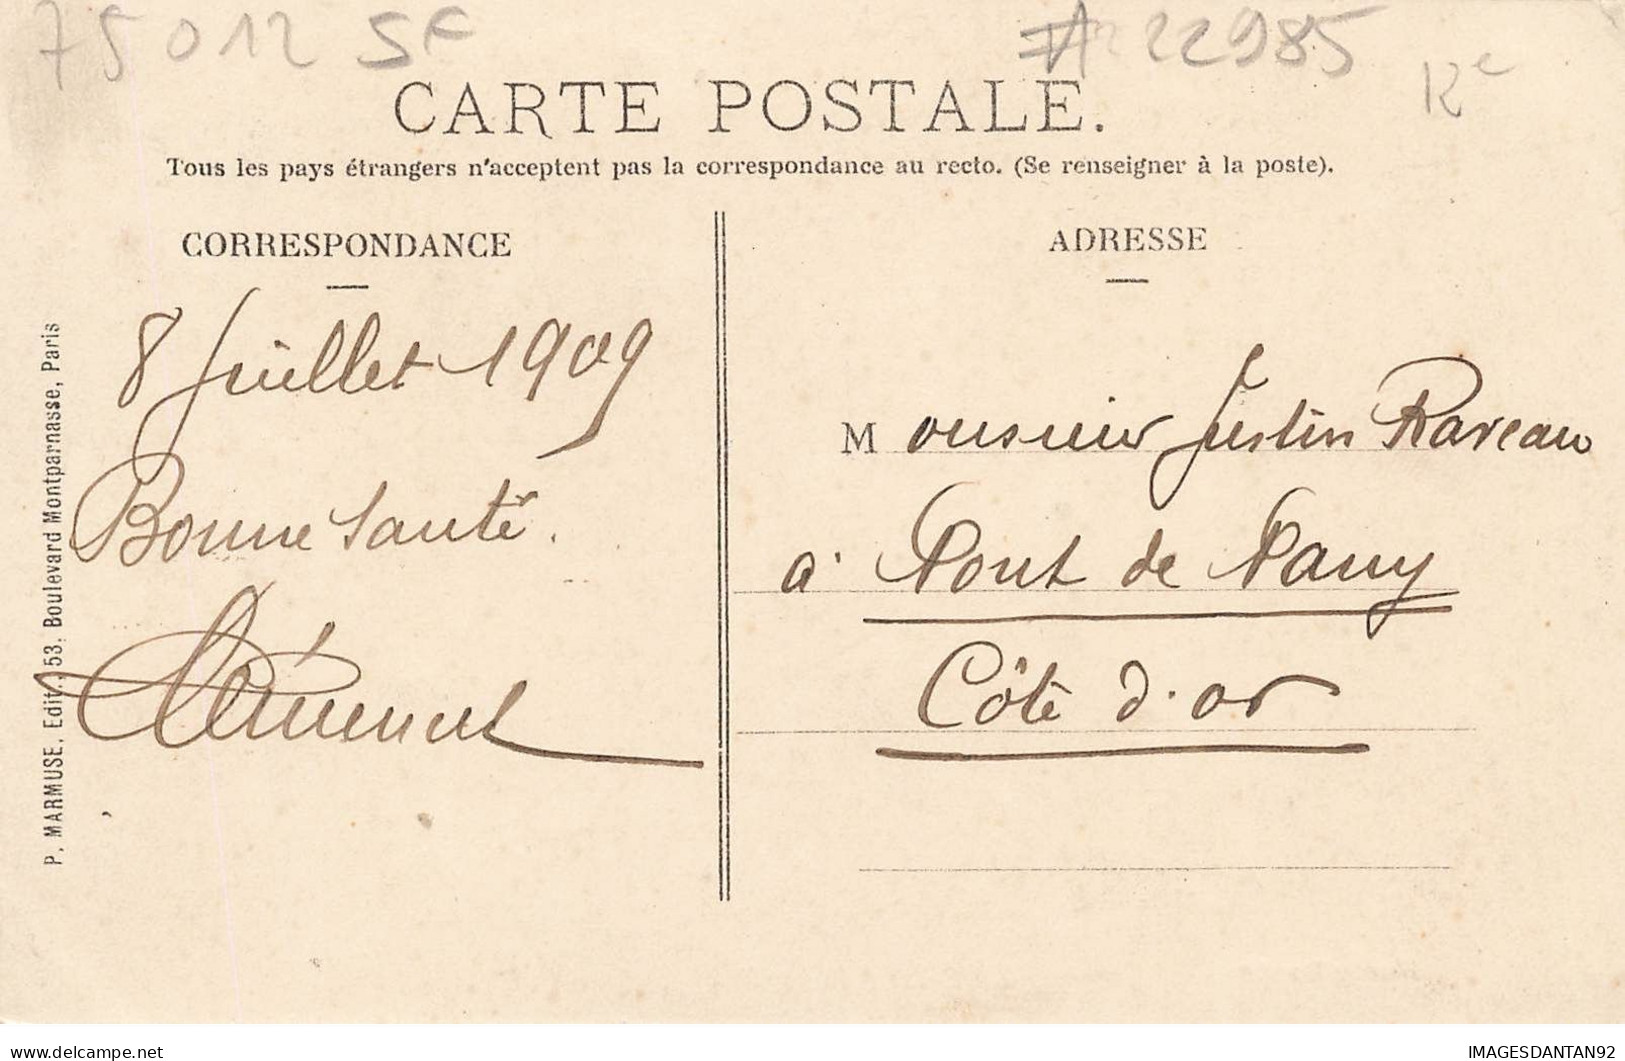 75012 SF # 22985 12e
CARTE POSTALE.
Tous les pays étrangers n'acceptent pas la correspondance au recto. (Se renseigner à la poste).
CORRESPONDANCE
8 Juillet 1909
Bonne Santé.
Clément
ADRESSE
Monsieur Justin Raveau
à Pont de Pany
Côte d'or
P. MARMUSE, Edit., 53, Boulevard Montparnasse, Paris
delcampe.net
IMAGESDANTAN92